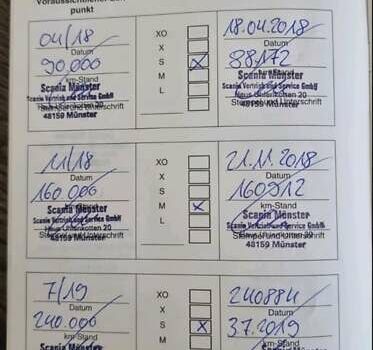 Voraussichtlicher
punkt
04/18 XO 18.04.2018
Datum X Datum
90.000 S 88.172
km-Stand M
Scania Münster L Scania Münster
Scania Vertrieb und Service GmbH Scania Vertrieb und Service GmbH
Haus Uhlenkotten 20
Stempel und Unterschrift Stempel und Unterschrift
48159 Münster 48159 Münster
11/18 XO 21.11.2018
Datum X Datum
160.000 S 160912
km-Stand M km-Stand
Scania Münster L Scania Münster
Scania Vertrieb und Service GmbH Scania Vertrieb und Service GmbH
Haus Uhlenkotten 20 Haus Uhlenkotten 20
Stempel und Unterschrift Stempel und Unterschrift
48159 Münster 48159 Münster
7/19 XO 240884
Datum X Datum
240.000 S 3.7.2019
km-Stand M km-Stand
Scania Münster Scania Münster